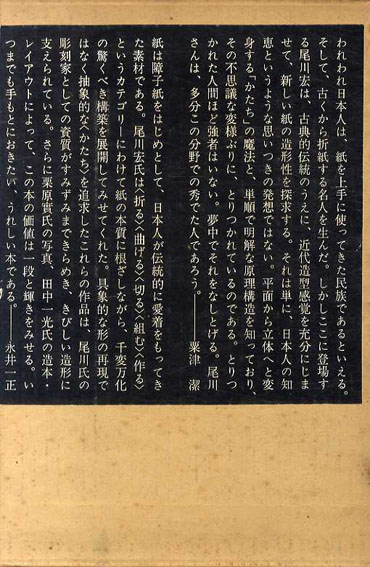 われわれ日本人は、紙を上手に使ってきた民族であるといえる。
そして、古くから折紙する名人を生んだ。しかしここに登場す
る尾川宏は、古典的伝統のうえに、近代造型感覚を充分にじま
せて、新しい紙の造形性を探求する。それは単に、日本人の知
恵というような思いつきの発想ではない。平面から立体へと変
身する「かたち」の魔法と、単順で明解な原理構造を知っており、
その不思議な変様ぶりに、とりつかれているのである。とりつ
かれた人間ほど強者はいない。夢中でそれをなしとげる。尾川
さんは、多分この分野での秀でた人であろう。——粟津 潔
紙は障子紙をはじめとして、日本人が伝統的に愛着をもってき
た素材である。尾川宏氏は〈折る〉〈曲げる〉〈切る〉〈組む〉〈作る〉
というカテゴリーにわけて紙の本質に根ざしながら、千変万化
の驚くべき構築を展開してみせてくれた。具象的な形の再現で
はなく抽象的な〈かたち〉を追求したこれらの作品は、尾川氏の
彫刻家としての資質がすみずみまできらめき、きびしい造形に
支えられている。さらに栗原實氏の写真、田中一光氏の造本・
レイアウトによって、この本の価値は一段と輝きをみせる。い
つまでも手もとにおきたい、うれしい本である。——永井一正